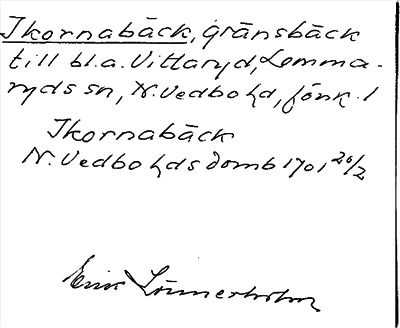 Ikornabäck, gränsbäck
till bl.a. Vittaryd, Lomma-
ryds sn, N. Vedbo hd, Jönk. l
Ikornabäck
N. Vedbo hds domb 1701 20/2
Erik Lönnerholm